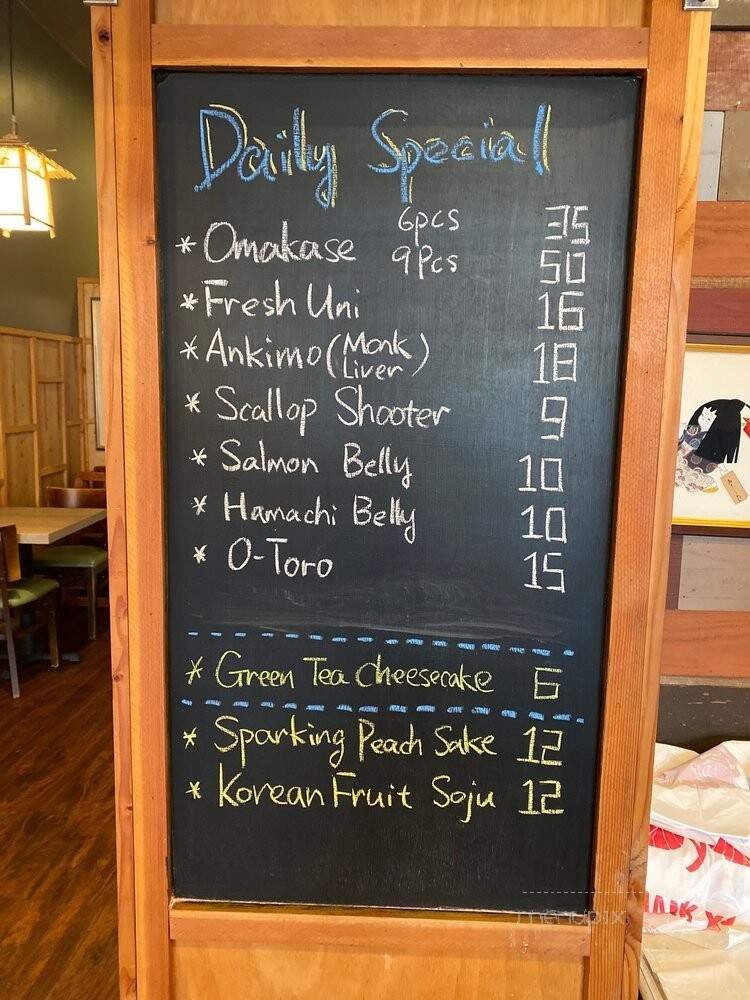 Daily Special
* Omakase 6pcs 35
9Pcs 50
* Fresh Uni 16
* Ankimo (Monk Liver) 18
* Scallop Shooter 9
* Salmon Belly 10
* Hamachi Belly 10
* O-Toro 15
* Green Tea Cheesecake 6
* Sparking Peach Sake 12
* Korean Fruit Soju 12
menupix